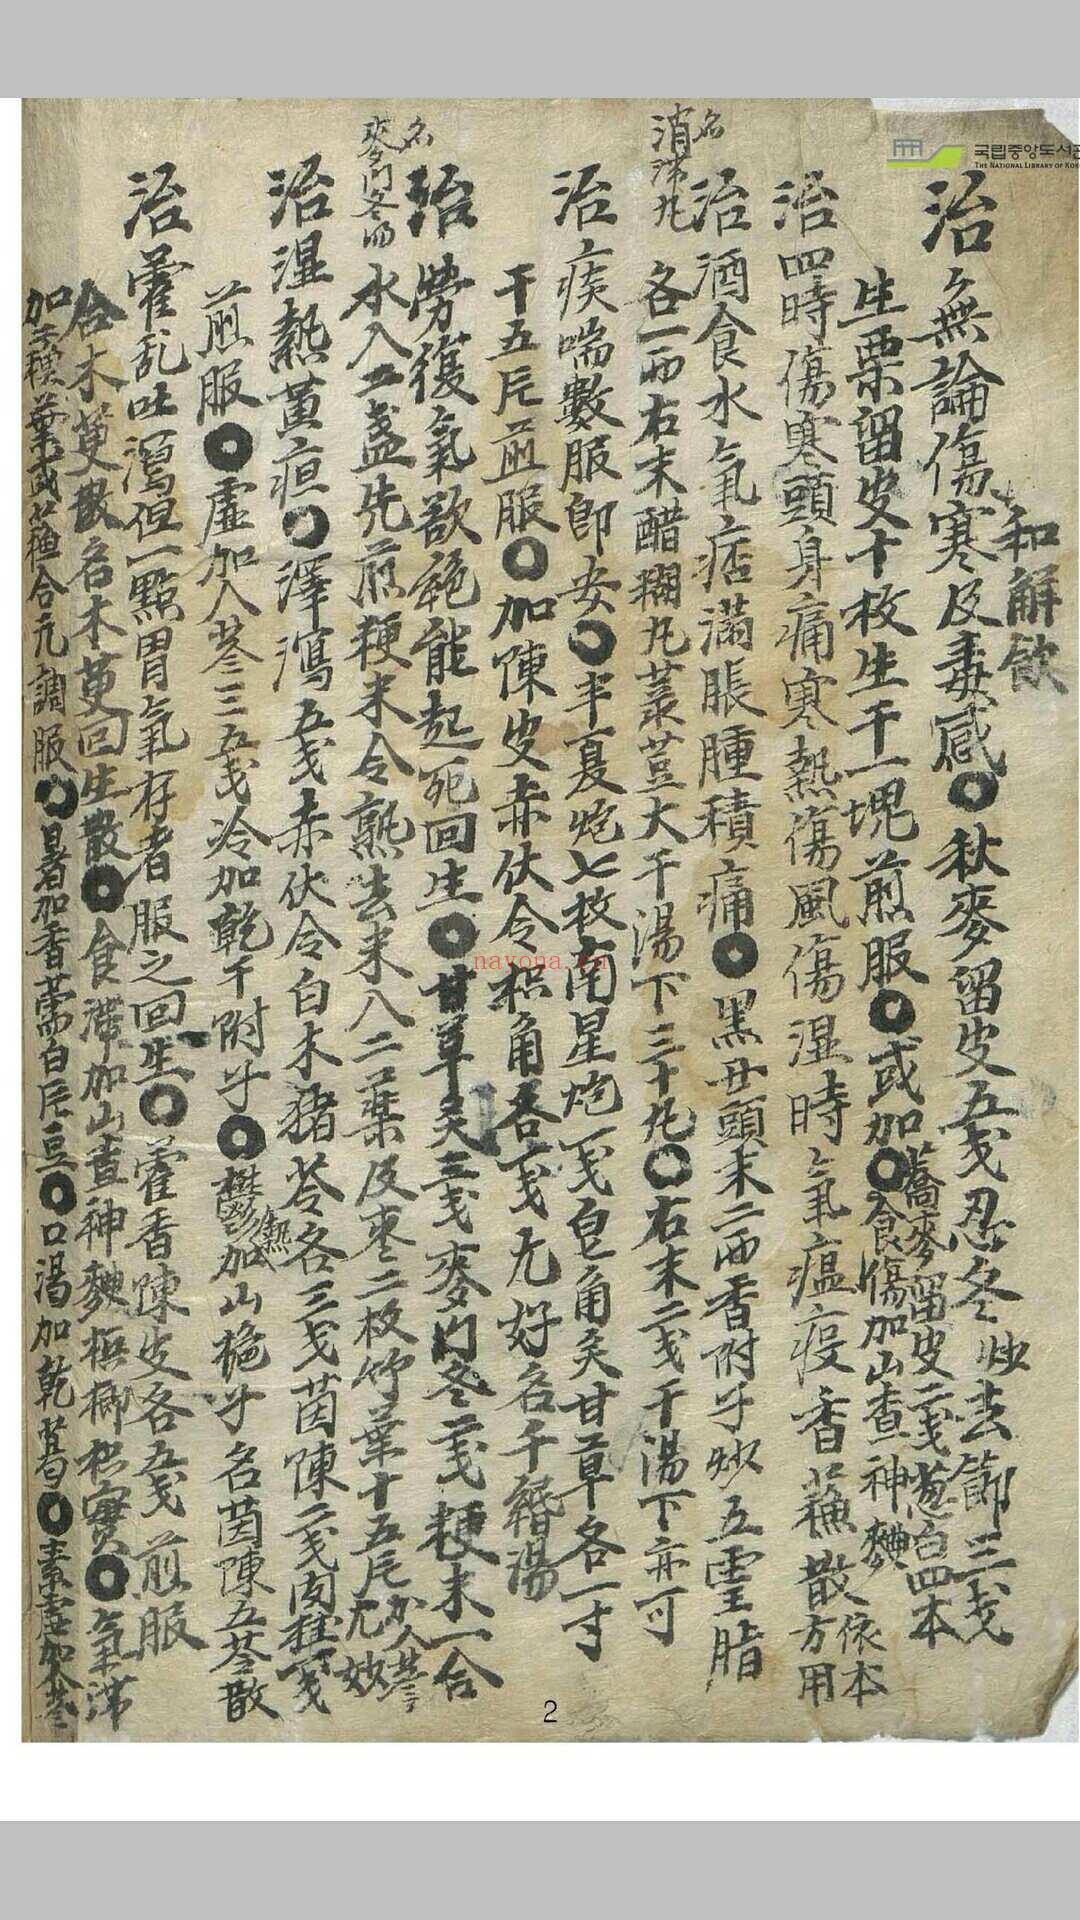 국립중앙도서관
THE NATIONAL LIBRARY OF KOR
和解飲
治 無論傷寒及毒感〇秋麥留皮五戔忍冬炒去節三戔
生栗留皮十枚生干一塊煎服〇或加蕎麥留皮二戔葱白四本
〇食傷加山查神麯
治四時傷寒頭身痛寒熱傷風傷湿時氣瘟疫香蘓散依本方用
治酒食水氣痞滿脹腫積痛〇黑丑頭末二両香附子炒五靈脂
名消滞丸
各一両右末醋糊丸菉荳大干湯下三十丸〇右末二戔干湯下亦可
治痰喘數服卽安〇半夏炮七枚南星炮一戔皂角炙甘草各一寸
干五片煎服〇加陳皮赤伏令枳角各一戔尤好名千緡湯
治勞復氣欲絶能起死回生〇甘草炙三戔麥門冬二戔粳米一合
名麥門冬湯
水入二盞先煎粳米令熟去米入二藥及枣二枚竹葉十五片加人參尤妙
治湿熱黃疸〇澤瀉五戔赤伏令白朮猪苓各三戔茵陳二戔肉桂一戔
煎服〇虛加人參三五戔冷加乾干附子〇鬱熱加山梔子名茵陳五苓散
治霍乱吐瀉但一點胃氣存者服之回生〇霍香陳皮各五戔煎服
合木萸散名木萸回生散〇食滯加山查神麯梹榔枳實〇氣滞
加 葉或蘓合元調服〇暑加香薷白片豆〇口渴加乾葛〇素虛加人參
nayona.cn
2